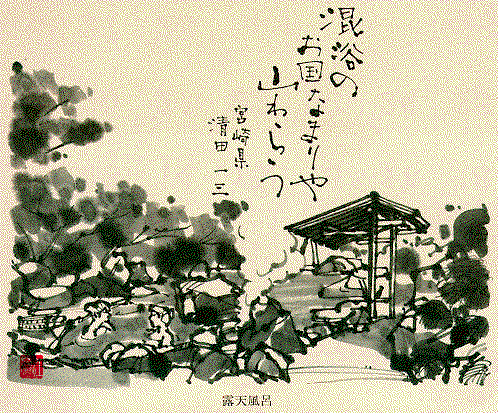 混浴の
お国なまりや
山わらう
宮崎県
清田一三
露天風呂